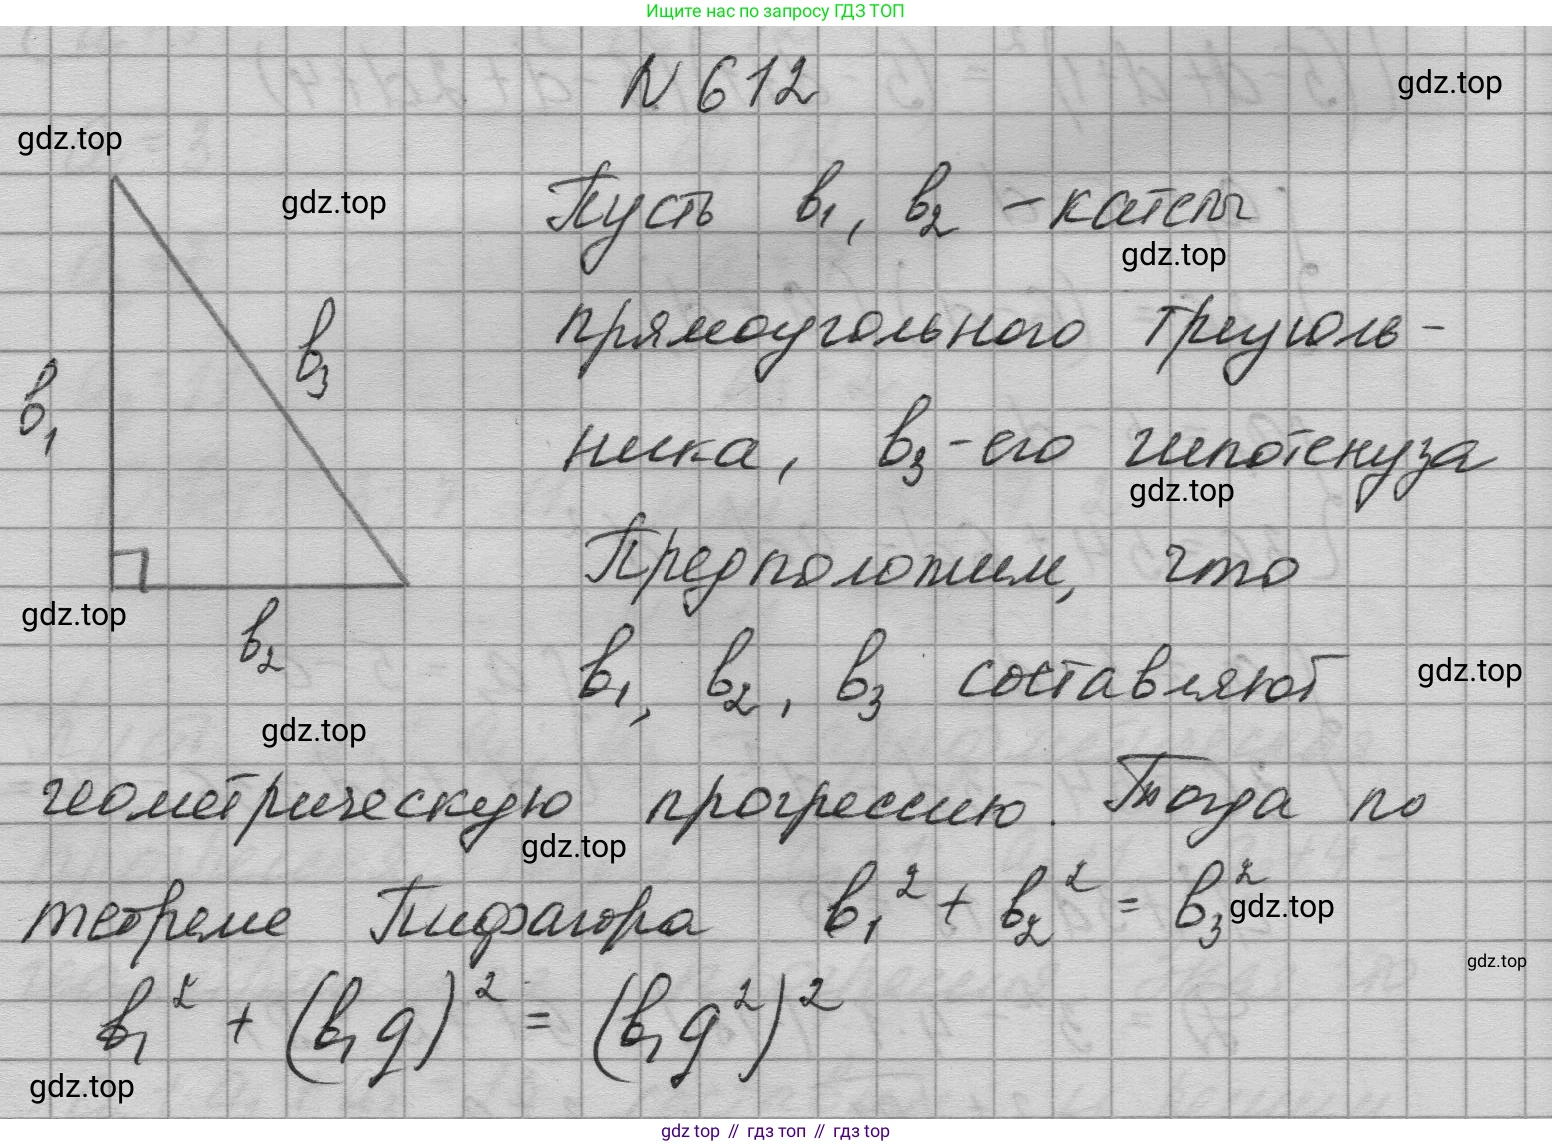 Ищите нас по запросу ГДЗ ТОП
N 612
gdz.top
gdz.top
gdz.top
Пусть b₁, b₂ - катеты
gdz.top
прямоугольного треуголь-
b₃
b₁
ника, b₃ - его гипотенуза
gdz.top
Предположим, что
gdz.top
b₂
b₁, b₂, b₃ составляют
gdz.top
gdz.top
геометрическую прогрессию. Тогда по
gdz.top
теореме Пифагора b₁² + b₂² = b₃²
gdz.top
gdz.top
b₁² + (b₁q)² = (b₁q²)²
gdz.top
gdz top // гдз топ // гдз top